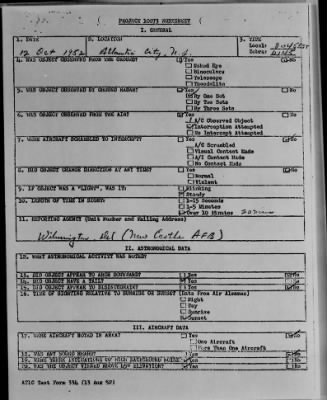 PROJECT 10073 WORKSHEET
I. GENERAL
1. DATE
2. LOCATION
3. TIME
12 Oct 1952
Atlantic City N.J.
Local:
Zebra:
4. WAS OBJECT OBSERVED FROM THE GROUND?
Yes
No
Naked Eye
Binoculars
Telescope
Theodolite
5. WAS OBJECT OBSERVED BY GROUND RADAR?
Yes
No
By One Set
By Two Sets
By Three Sets
6. WAS OBJECT OBSERVED FROM THE AIR?
Yes
No
A/C Observed Object
Interception Attempted
No Intercept Attempted
7. WERE AIRCRAFT SCRAMBLED TO INTERCEPT?
Yes
No
A/C Scrambled
Visual Contact Made
A/I Contact Made
No Contact Made
8. DID OBJECT CHANGE DIRECTION AT ANY TIME?
Yes
No
Normal
Violent
9. IF OBJECT WAS A "LIGHT", WAS IT:
Blinking
Steady
10. LENGTH OF TIME IN SIGHT:
1-15 Seconds
1-5 Minutes
Over 10 Minutes
11. REPORTING AGENCY (Unit Number and Mailing Address)
Wilmington, Del (New Castle AFB)
II. ASTRONOMICAL DATA
12. WHAT ASTRONOMICAL ACTIVITY WAS NOTED?
13. DID OBJECT APPEAR TO ARCH DOWNWARD?
Yes
No
14. DID OBJECT HAVE A TAIL?
Yes
No
15. DID OBJECT APPEAR TO DISINTEGRATE?
Yes
No
16. TIME OF SIGHTING RELATIVE TO SUNRISE OR SUNSET (Data from Air Almanac)
Night
Day
Sunrise
Sunset
III. AIRCRAFT DATA
17. WERE AIRCRAFT NOTED IN AREA?
Yes
No
One Aircraft
More Than One Aircraft
18. WAS ANY SOUND HEARD?
Yes
No
Yes
No
20. WAS THE OBJECT VIEWED ABOVE 45° ELEVATION?
Yes
No
ATIC Test Form 334 (13 Aug 52)